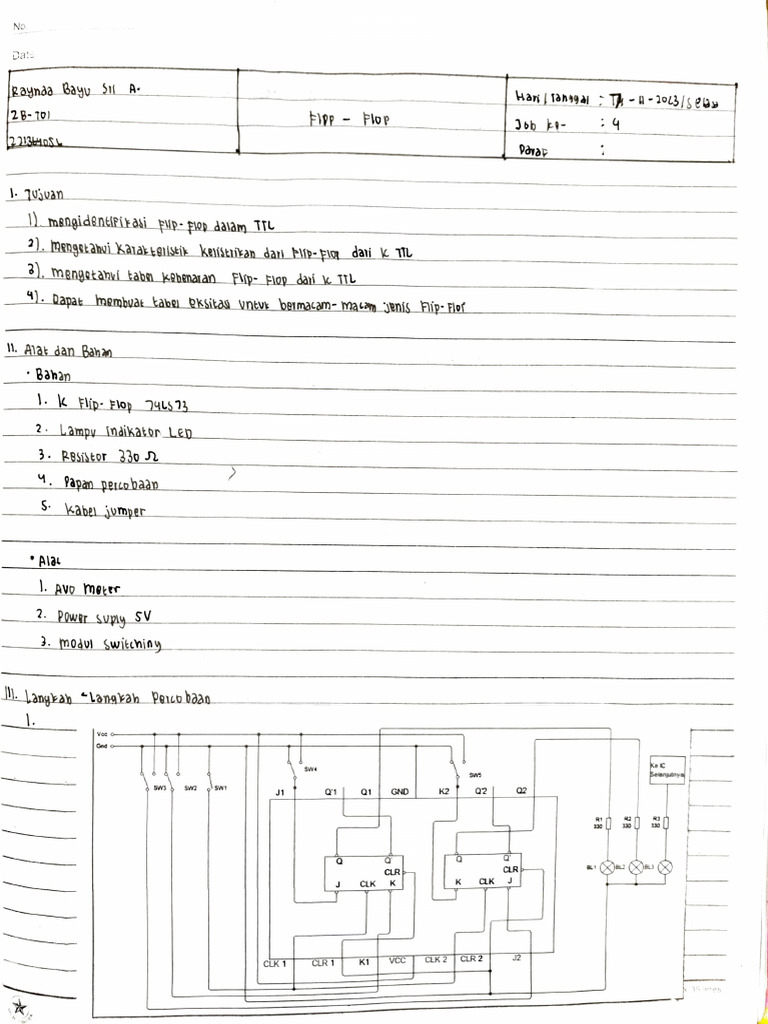 No
Date
Raynda Bayu Sil A.
2B-TO1
Flpp - Flop
Hari/Tanggal : -11-2023/Selasa
Job ke- : 4
Paraf :
I. Tujuan
1) mengidentifikasi Flip-Flop dalam TTL
2). Mengetahui Karakteristik kelistrikan dari Flip-Flop dari IC TTL
3). mengetahui tabel kebenaran Flip-Flop dari IC TTL
4). Dapat membuat tabel eksitasi untuk bermacam-macam jenis Flip-Flop
II. Alat dan Bahan
• Bahan
1. IC Flip-Flop 74LS73
2. Lampu indikator LED
3. Resistor 330 Ω
4. Papan percobaan
5. Kabel jumper
• Alat
1. AVO meter
2. Power suply 5V
3. modul switching
III. Langkah-Langkah Percobaan
1.
Vcc
Gnd
SW3 SW2 SW1 SW4 SW5
Ke IC
Selanjutnya
J1 Q'1 Q1 GND K2 Q'2 Q2
R1 R2 R3
330 330 330
Q Q' Q Q'
CLR CLR
J CLK K K CLK J
BL1 BL2 BL3
CLK 1 CLR 1 K1 VCC CLK 2 CLR 2 J2